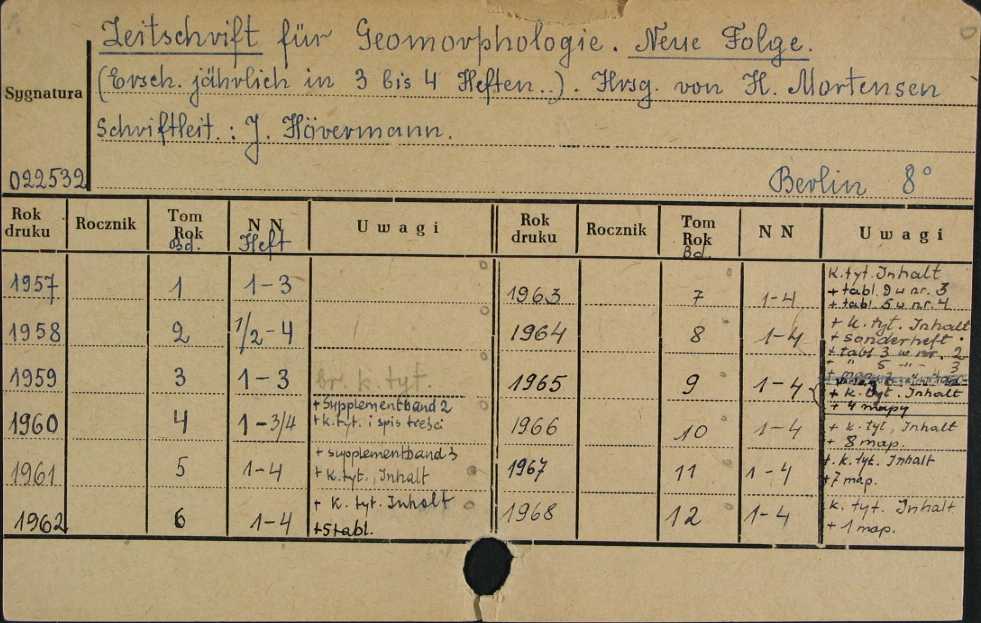 Zeitschrift für Geomorphologie. Neue Folge.
(Ersch. jährlich in 3 bis 4 Heften..). Hrsg. von H. Mortensen
Sygnatura
Schriftleit.: J. Hövermann.
022532
Berlin 8°
Rok druku Rocznik Tom Rok Bd. NN Heft Uwagi Rok druku Rocznik Tom Rok Bd. NN Uwagi
1957 1 1-3
1958 2 1/2-4
1959 3 1-3 br. k. tyt.
1960 4 1-3/4 + Supplementband 2
+ k. tyt. i spis treści
1961 5 1-4 + supplementband 3
+ k. tyt., Inhalt
1962 6 1-4 + k. tyt. Inhalt
+ 5 tabl.
1963 7 1-4 k. tyt. Inhalt
+ tabl. 9 w nr. 3
+ tabl. 5 w nr. 4
1964 8 1-4 + k. tyt. Inhalt
+ sonderheft
+ tabl 3 w nr. 2
+ " 5 -"- 3
1965 9 1-4 + k. tyt. Inhalt
+ 4 mapy
1966 10 1-4 + k. tyt, Inhalt
+ 8 map.
1967 11 1-4 + k. tyt. Inhalt
+ 7 map.
1968 12 1-4 k. tyt. Inhalt
+ 1 map.